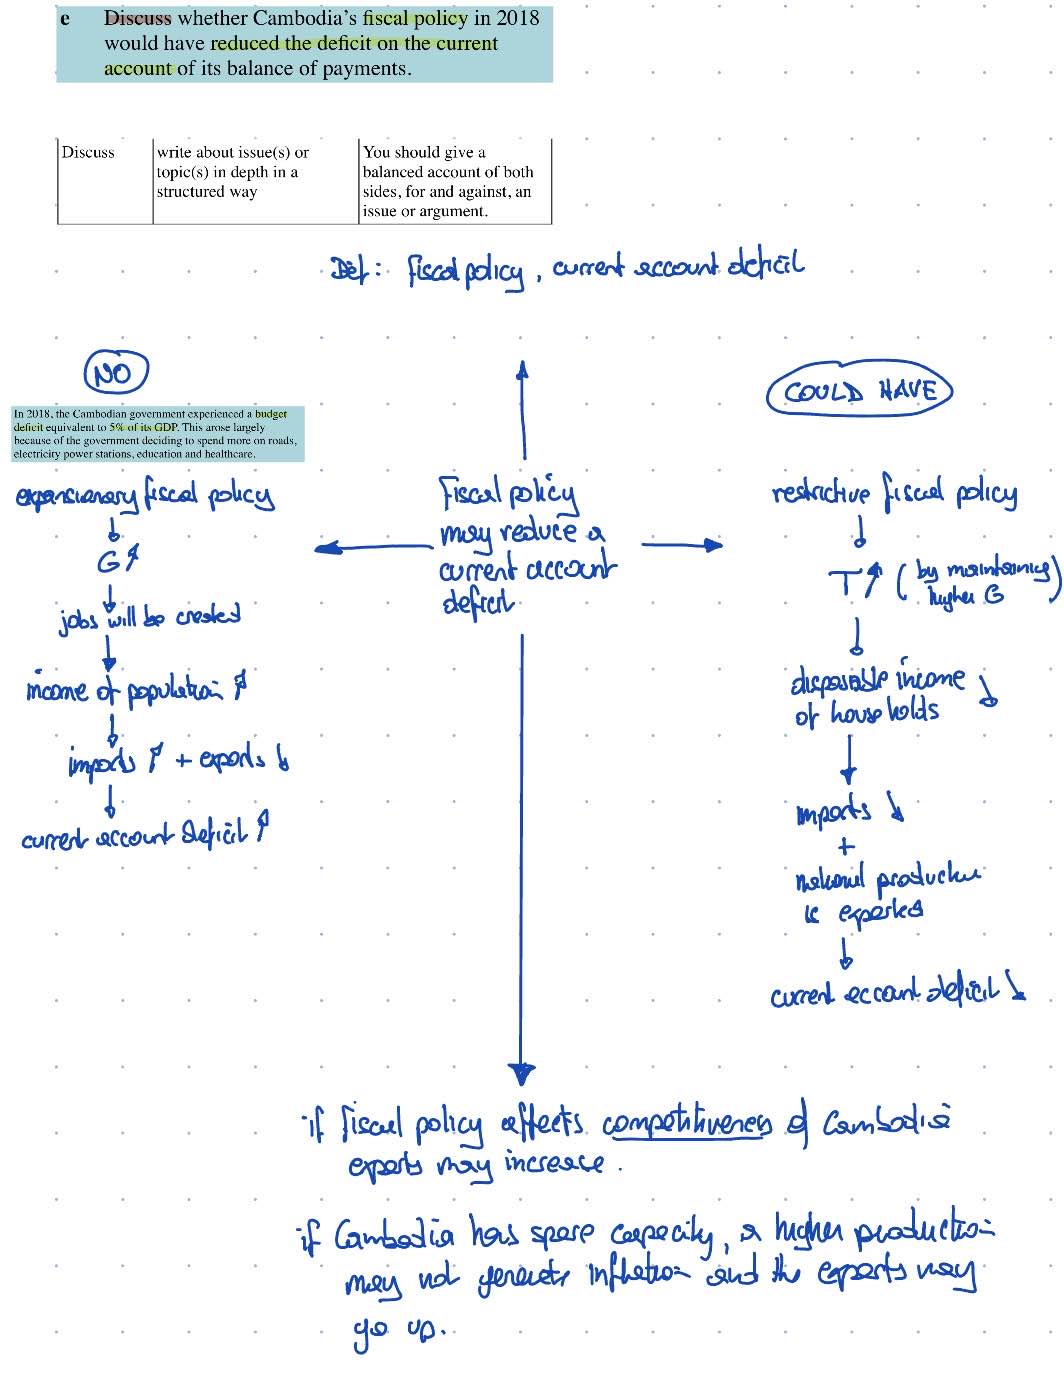 e Discuss whether Cambodia's fiscal policy in 2018
would have reduced the deficit on the current
account of its balance of payments.
Discuss
write about issue(s) or
topic(s) in depth in a
structured way
You should give a
balanced account of both
sides, for and against, an
issue or argument.
Def: fiscal policy, current account deficit
NO
In 2018, the Cambodian government experienced a budget
deficit equivalent to 5% of its GDP. This arose largely
because of the government deciding to spend more on roads,
electricity power stations, education and healthcare.
expansionary fiscal policy
G ↑
jobs will be created
income of population ↑
imports ↑ + exports ↓
current account deficit ↑
Fiscal policy
may reduce a
current account
deficit.
COULD HAVE
restrictive fiscal policy
T ↑ (by maintaining
higher G)
disposable income ↓
of households
imports ↓
+
national production
is exported
current account deficit ↓
if fiscal policy affects competitiveness of Cambodia
exports may increase.
if Cambodia has spare capacity, a higher production
may not generate inflation and the exports may
go up.